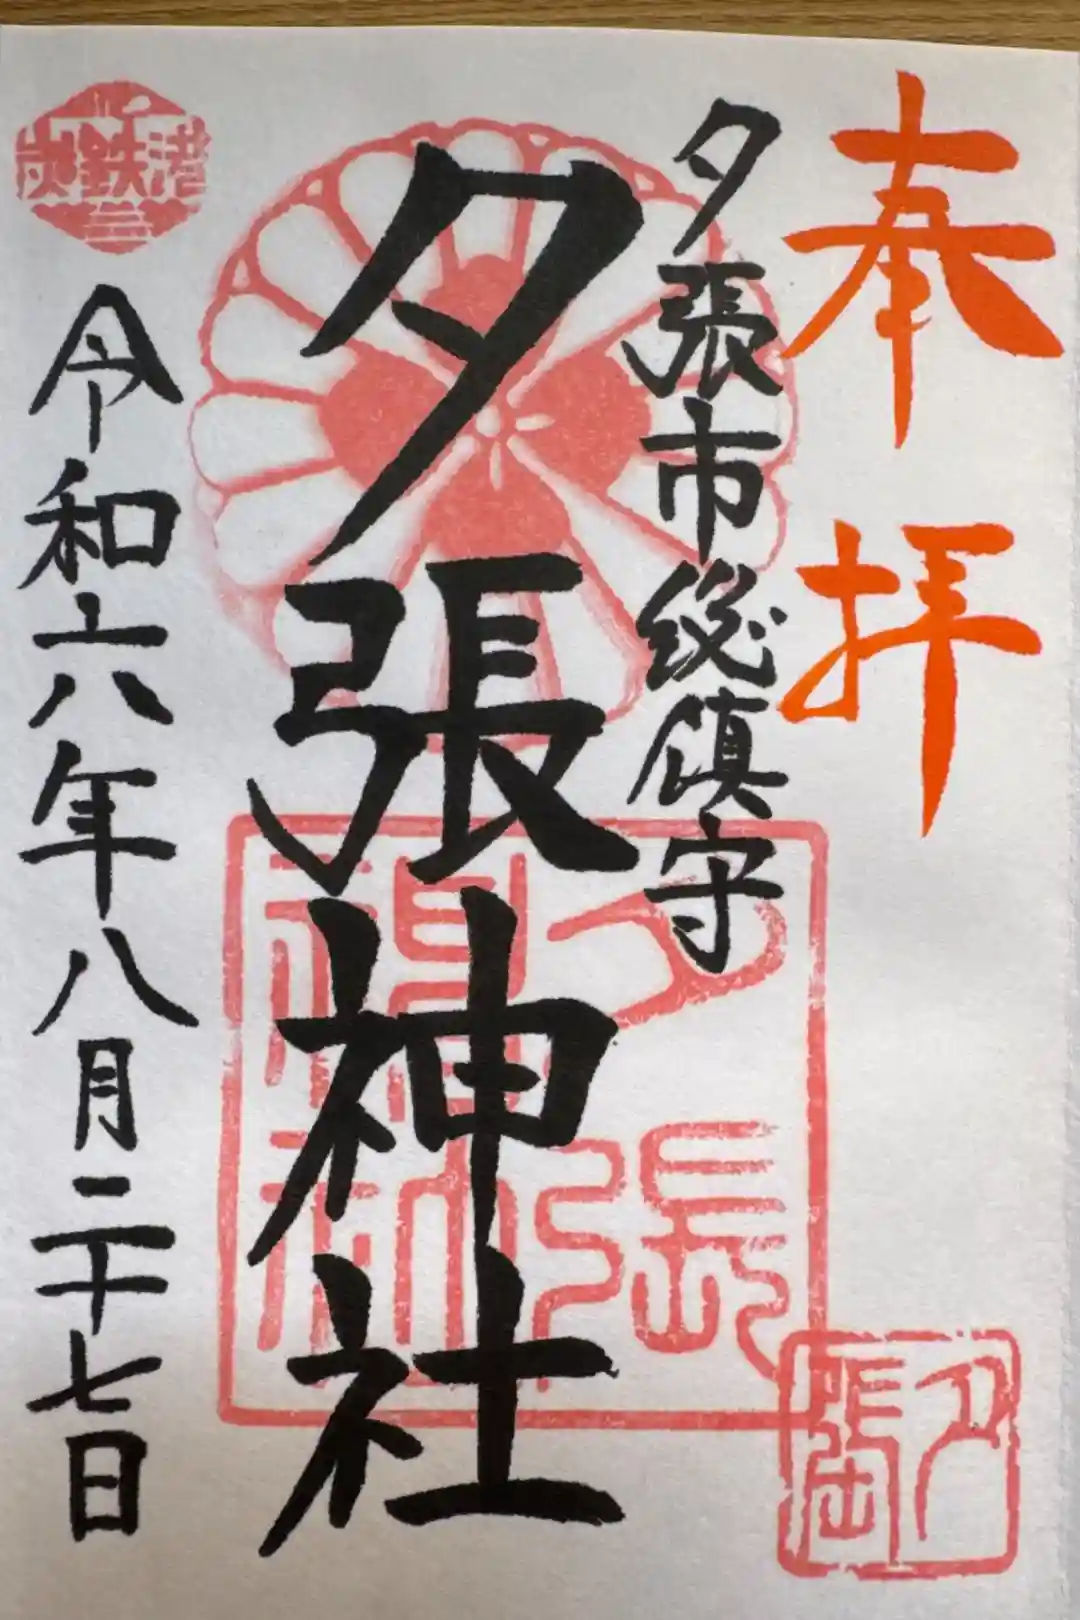 奉拝
夕張市総鎮守
夕張神社
令和六年八月二十七日
炭鉄港
夕張
神社